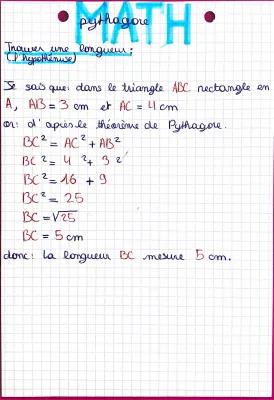 MATH
pythagore
Trouver une longueur :
(l'hypothénuse)
Je sais que : dans le triangle ABC rectangle en
A, AB = 3 cm et AC = 4 cm
or : d'après le théorème de Pythagore.
BC² = AC² + AB²
BC² = 4² + 3²
BC² = 16 + 9
BC² = 25
BC = √25
BC = 5 cm
donc : La longueur BC mesure 5 cm.